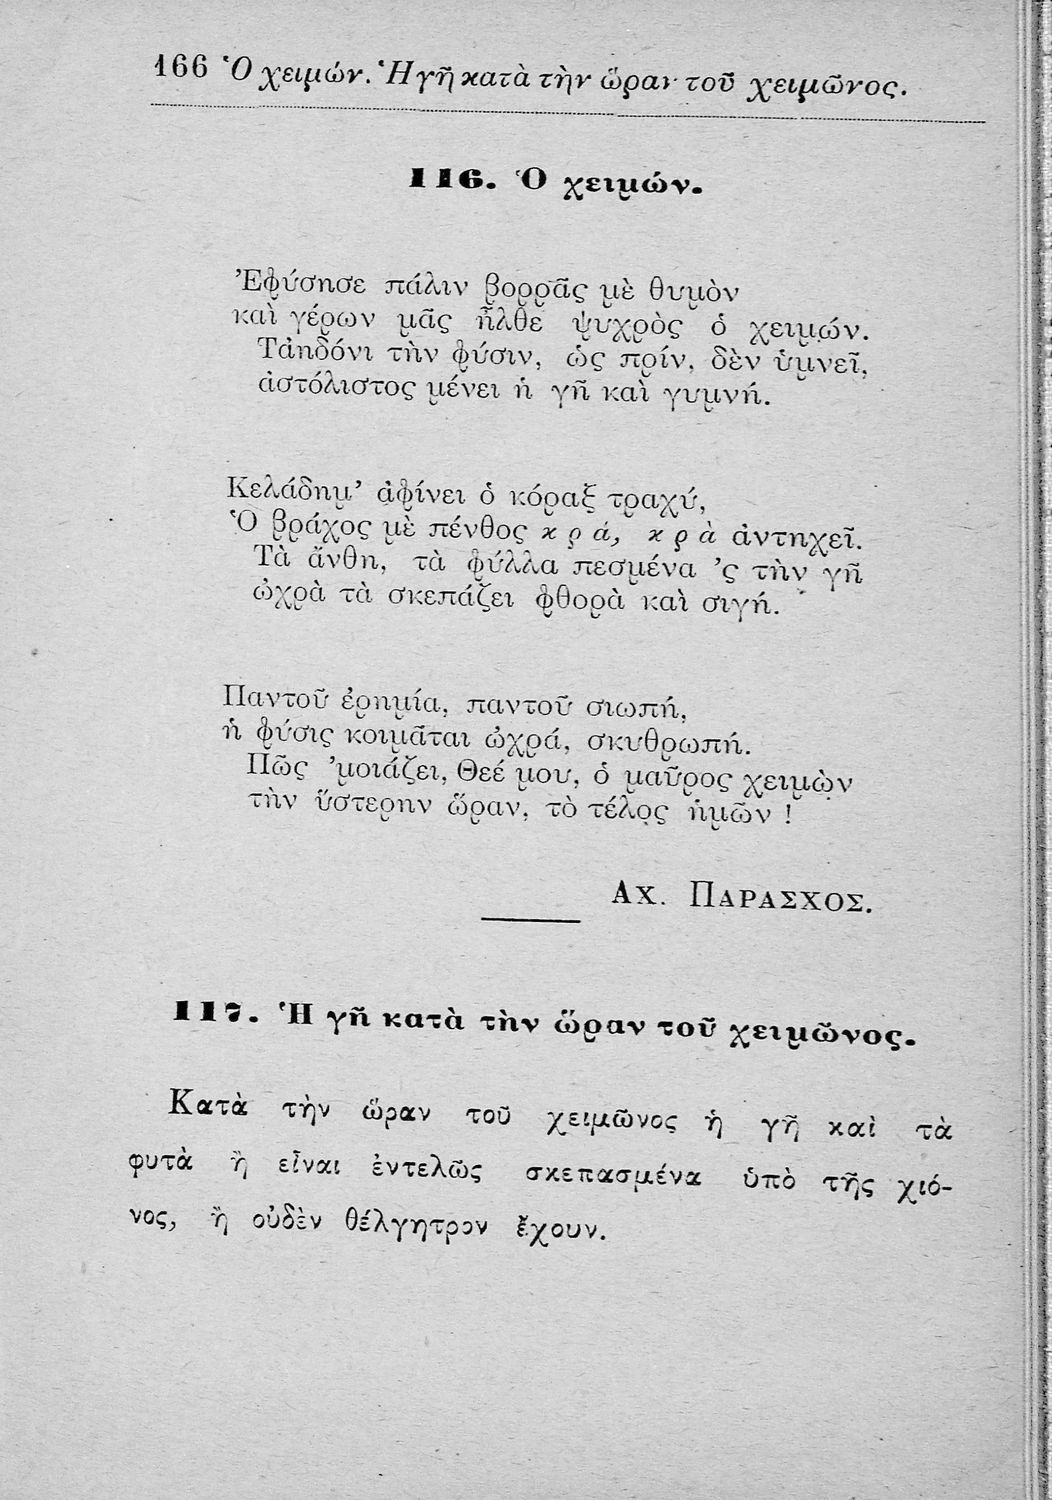 166 Ὁ χειμών. Ἡ γῆ κατὰ τὴν ὥραν τοῦ χειμῶνος.
116. Ὁ χειμών.
Ἐφύσησε πάλιν βορρᾶς μὲ θυμὸν
καὶ γέρων μᾶς ἦλθε ψυχρὸς ὁ χειμών.
Τἀηδόνι τὴν φύσιν, ὡς πρίν, δὲν ὑμνεῖ,
ἀστόλιστος μένει ἡ γῆ καὶ γυμνή.
Κελάδημ’ ἀφίνει ὁ κόραξ τραχύ,
Ὁ βράχος μὲ πένθος κρά, κρὰ ἀντηχεῖ.
Τὰ ἄνθη, τὰ φύλλα πεσμένα ’ς τὴν γῆ
ὠχρὰ τὰ σκεπάζει φθορὰ καὶ σιγή.
Παντοῦ ἐρημία, παντοῦ σιωπή,
ἡ φύσις κοιμᾶται ὠχρά, σκυθρωπή.
Πῶς ’μοιάζει, Θεέ μου, ὁ μαῦρος χειμὼν
τὴν ὕστερην ὥραν, τὸ τέλος ἡμῶν !
ΑΧ. ΠΑΡΑΣΧΟΣ.
117. Ἡ γῆ κατὰ τὴν ὥραν τοῦ χειμῶνος.
Κατὰ τὴν ὥραν τοῦ χειμῶνος ἡ γῆ καὶ τὰ
φυτὰ ἢ εἶναι ἐντελῶς σκεπασμένα ὑπὸ τῆς χιό-
νος, ἢ οὐδὲν θέλγητρον ἔχουν.